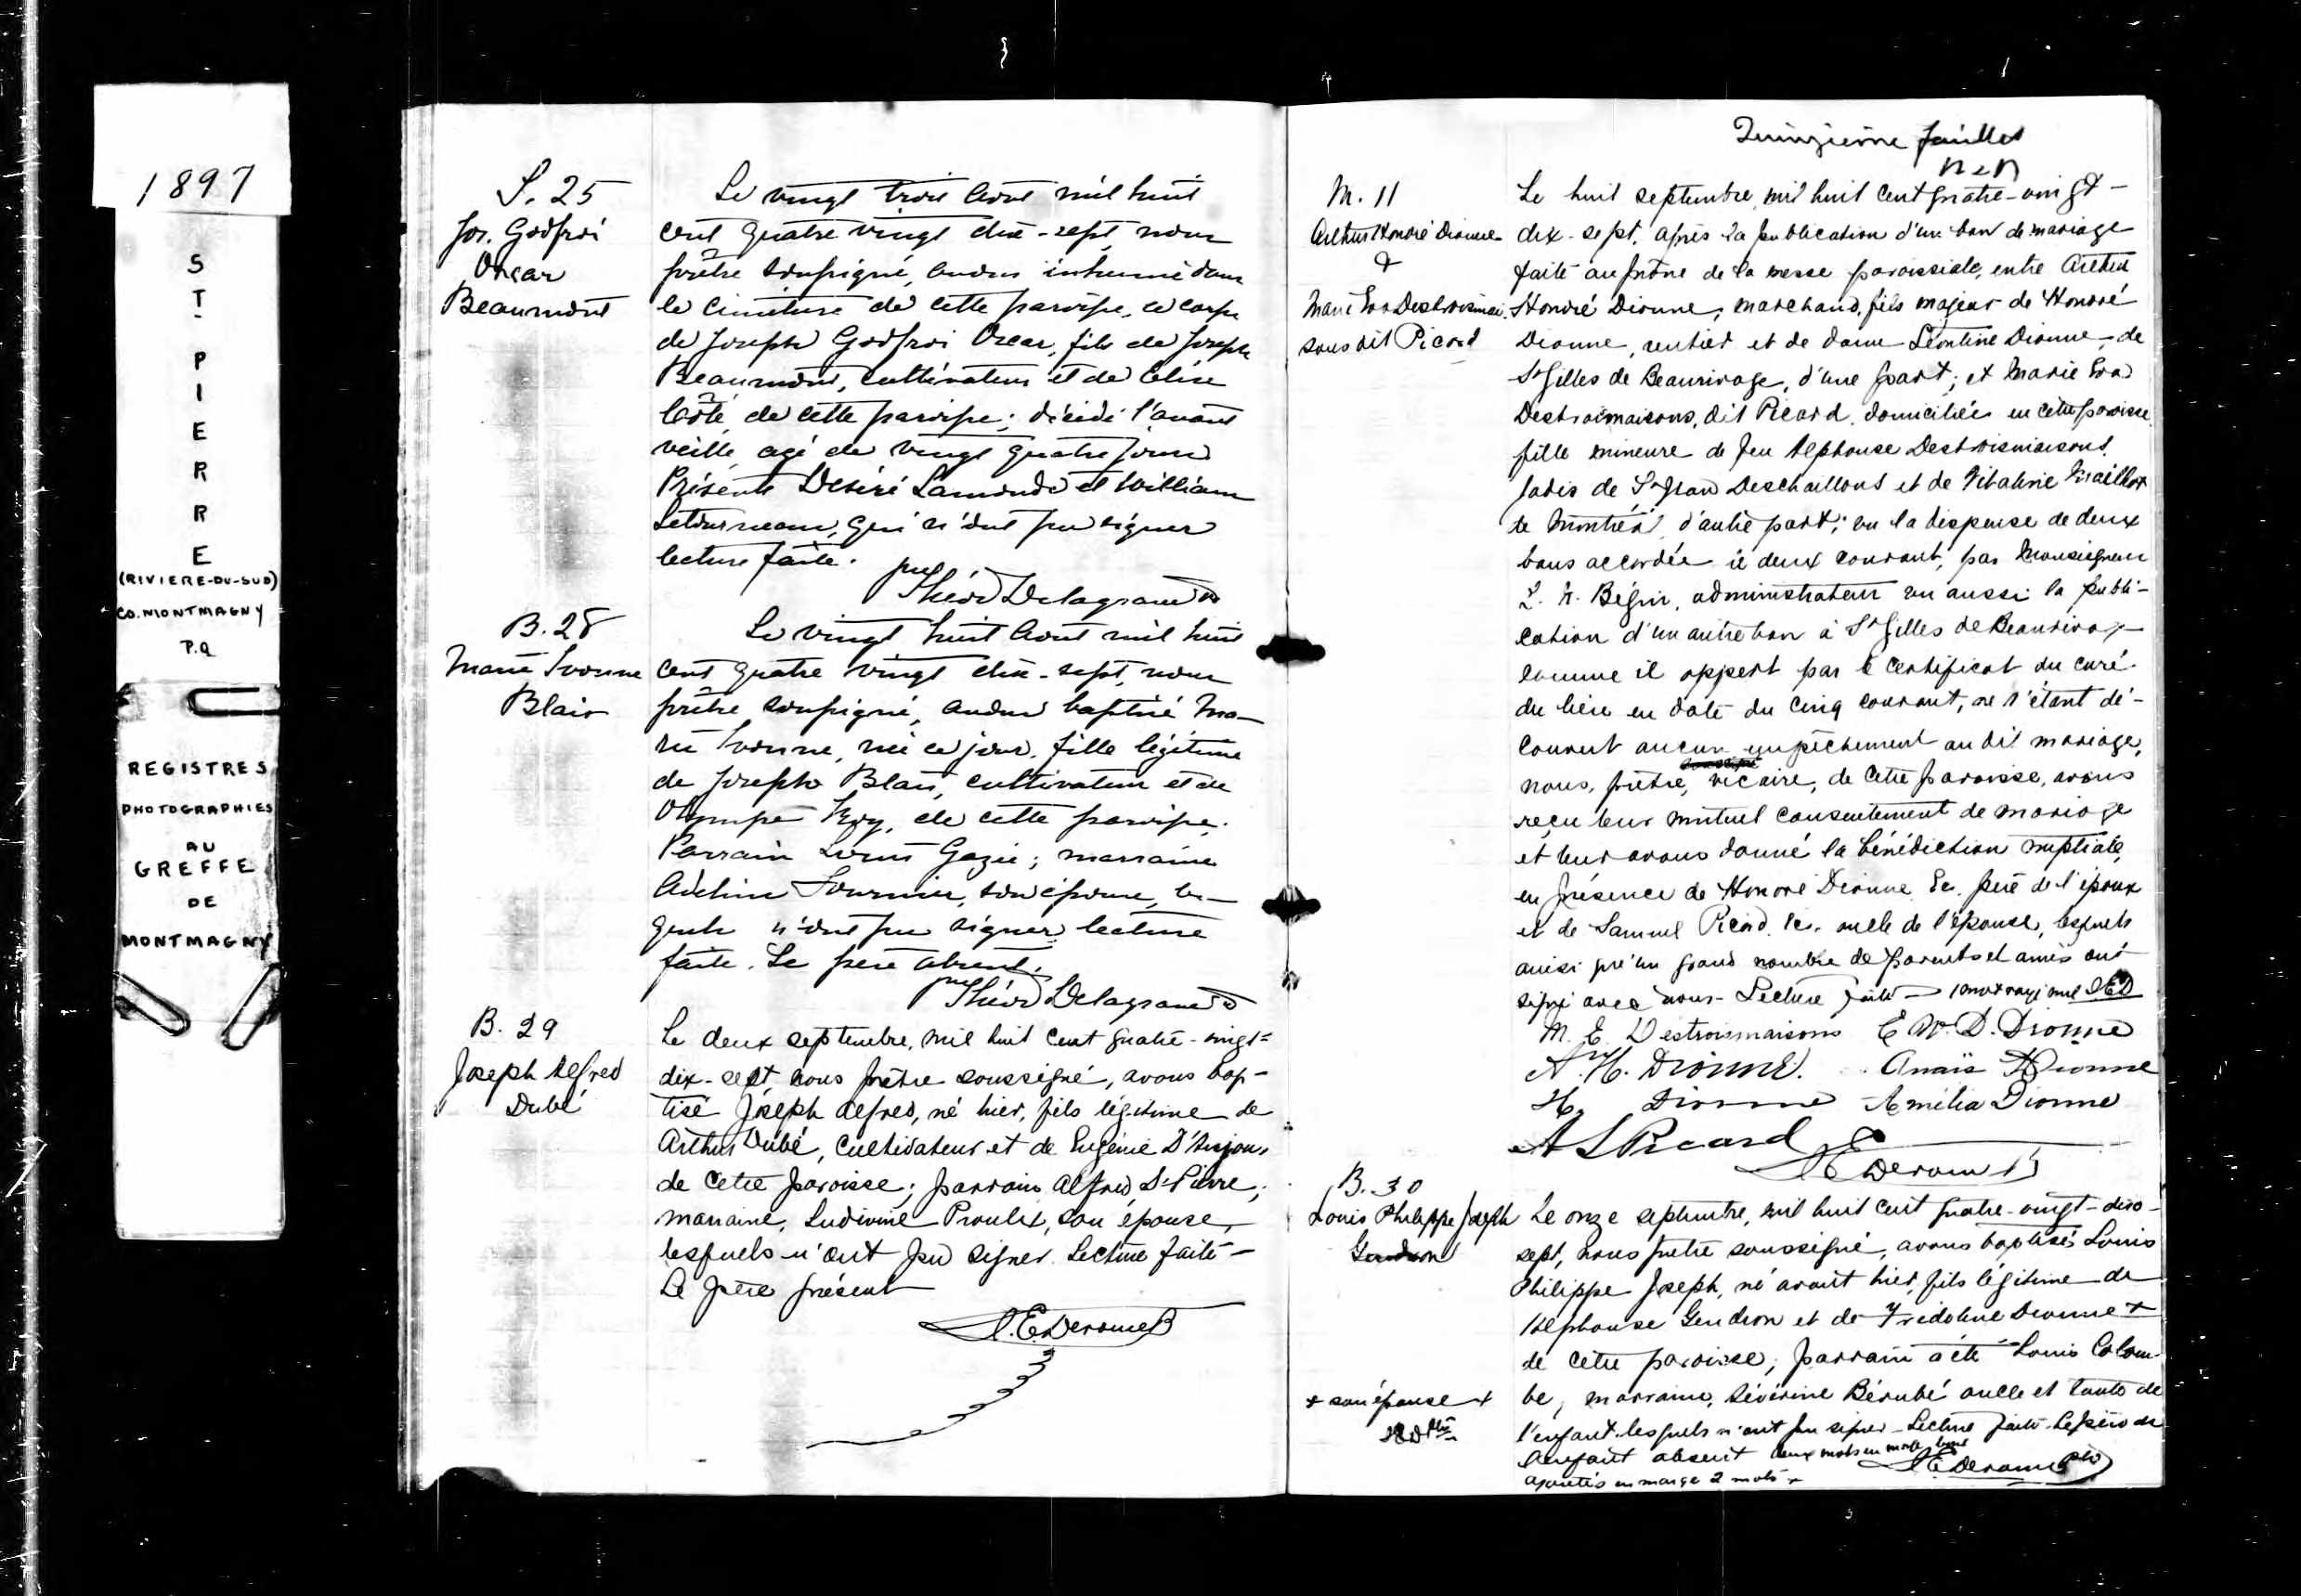 1897
S
T
P
I
E
R
R
E
(RIVIERE-DU-SUD)
CO. MONTMAGNY
P.Q
REGISTRES
PHOTOGRAPHIES
AU
GREFFE
DE
MONTMAGNY
S. 25
Jos. Godfroi
Oscar
Beaumont
Le vingt trois Aout mil huit
cent quatre vingt dix-sept, nous
prêtre soussigné, avons inhumé dans
le cimetière de cette paroisse, le corps
de Joseph Godfroi Oscar, fils de Joseph
Beaumont, cultivateur et de Célise
Coté, de cette paroisse; décédé l'avant
veille, agé de vingt quatre jours
Présents Désiré Lamonde et William
Letourneau, qui n'ont pu signer
lecture faite.
Théod Delagrave ptre
B. 28
Marie Ivonne
Blais
Le vingt huit Aout mil huit
cent quatre vingt dix-sept, nous
prêtre soussigné, avons baptisé Ma-
rie Ivonne, née ce jour, fille légitime
de Joseph Blais, cultivateur et de
Olympe Roy, de cette paroisse.
Parrain Louis Gazié; marraine
Adeline Fournier, son épouse, les-
quels n'ont pu signer lecture
faite. Le père absent.
Théod Delagrave ptre
B. 29
Joseph Alfred
Dubé
Le deux septembre, mil huit cent quatre-vingt=
dix-sept, nous prêtre soussigné, avons bap-
tisé Joseph Alfred, né hier, fils légitime de
Arthur Dubé, cultivateur et de Eugénie D'Anjou,
de cette paroisse; parrain Alfred St-Pierre;
marraine, Ludivine Proulx, son épouse,
lesquels n'ont pu signer. Lecture faite-
Le père présent
L.E. Derome
Quinzième feuillet
M. 11
Arthur Honoré Dionne
&
Marie Eva Destroismais.
sons dit Picard
Le huit septembre, mil huit cent quatre-vingt-
dix-sept, après la publication d'un ban de mariage
faite au prône de la messe paroissiale, entre Arthur
Honoré Dionne, marchand, fils majeur de Honoré
Dionne, rentier et de dame Léontine Dionne, de
St Gilles de Beaurivage, d'une part; et Marie Eva
Destroismaisons, dit Picard, domiciliée en cette paroisse
fille mineure de feu Alphonse Destroismaisons,
jadis de St Jean Deschaillons et de Vitaline Maillot
de Montréal, d'autre part; vu la dispense de deux
bans accordée le deux courant, par Monseigneur
L. N. Bégin, administrateur vu aussi la publi-
cation d'un autre ban à St Gilles de Beaurivage
comme il appert par le certificat du curé
du lieu en date du cinq courant, ne s'étant dé-
couvert aucun empêchement au dit mariage,
nous, prêtre, vicaire, de cette paroisse, avons
reçu leur mutuel consentement de mariage
et leur avons donné la bénédiction nuptiale,
en présence de Honoré Dionne Ec. père de l'époux
et de Samuel Picard Ec. oncle de l'épouse, lesquels
ainsi qu'un grand nombre de parents et amis ont
signé avec nous- Lecture faite- 1 mot rayé nul LED
M. E. Destroismaisons E W. D. Dionne
A. H. Dionne. Anaïs Dionne
H. Dionne Amélia Dionne
A S Picard
L E Derome
B. 30
Louis Philippe Joseph
Gendron
Le onze septembre, mil huit cent quatre-vingt-dix-
sept, nous prêtre soussigné, avons baptisé Louis
Philippe Joseph, né avant hier, fils légitime de
Alphonse Gendron et de Fridoline Dionne +
de cette paroisse; parrain a été Louis Colom-
be, marraine, Séverine Bérubé oncle et tante de
l'enfant lesquels n'ont pu signer- Lecture faite. Le père de
l'enfant absent deux mots en marge bons
L E Derome ptre
ajoutés en marge 2 mots +
+ son épouse +
LED ptre